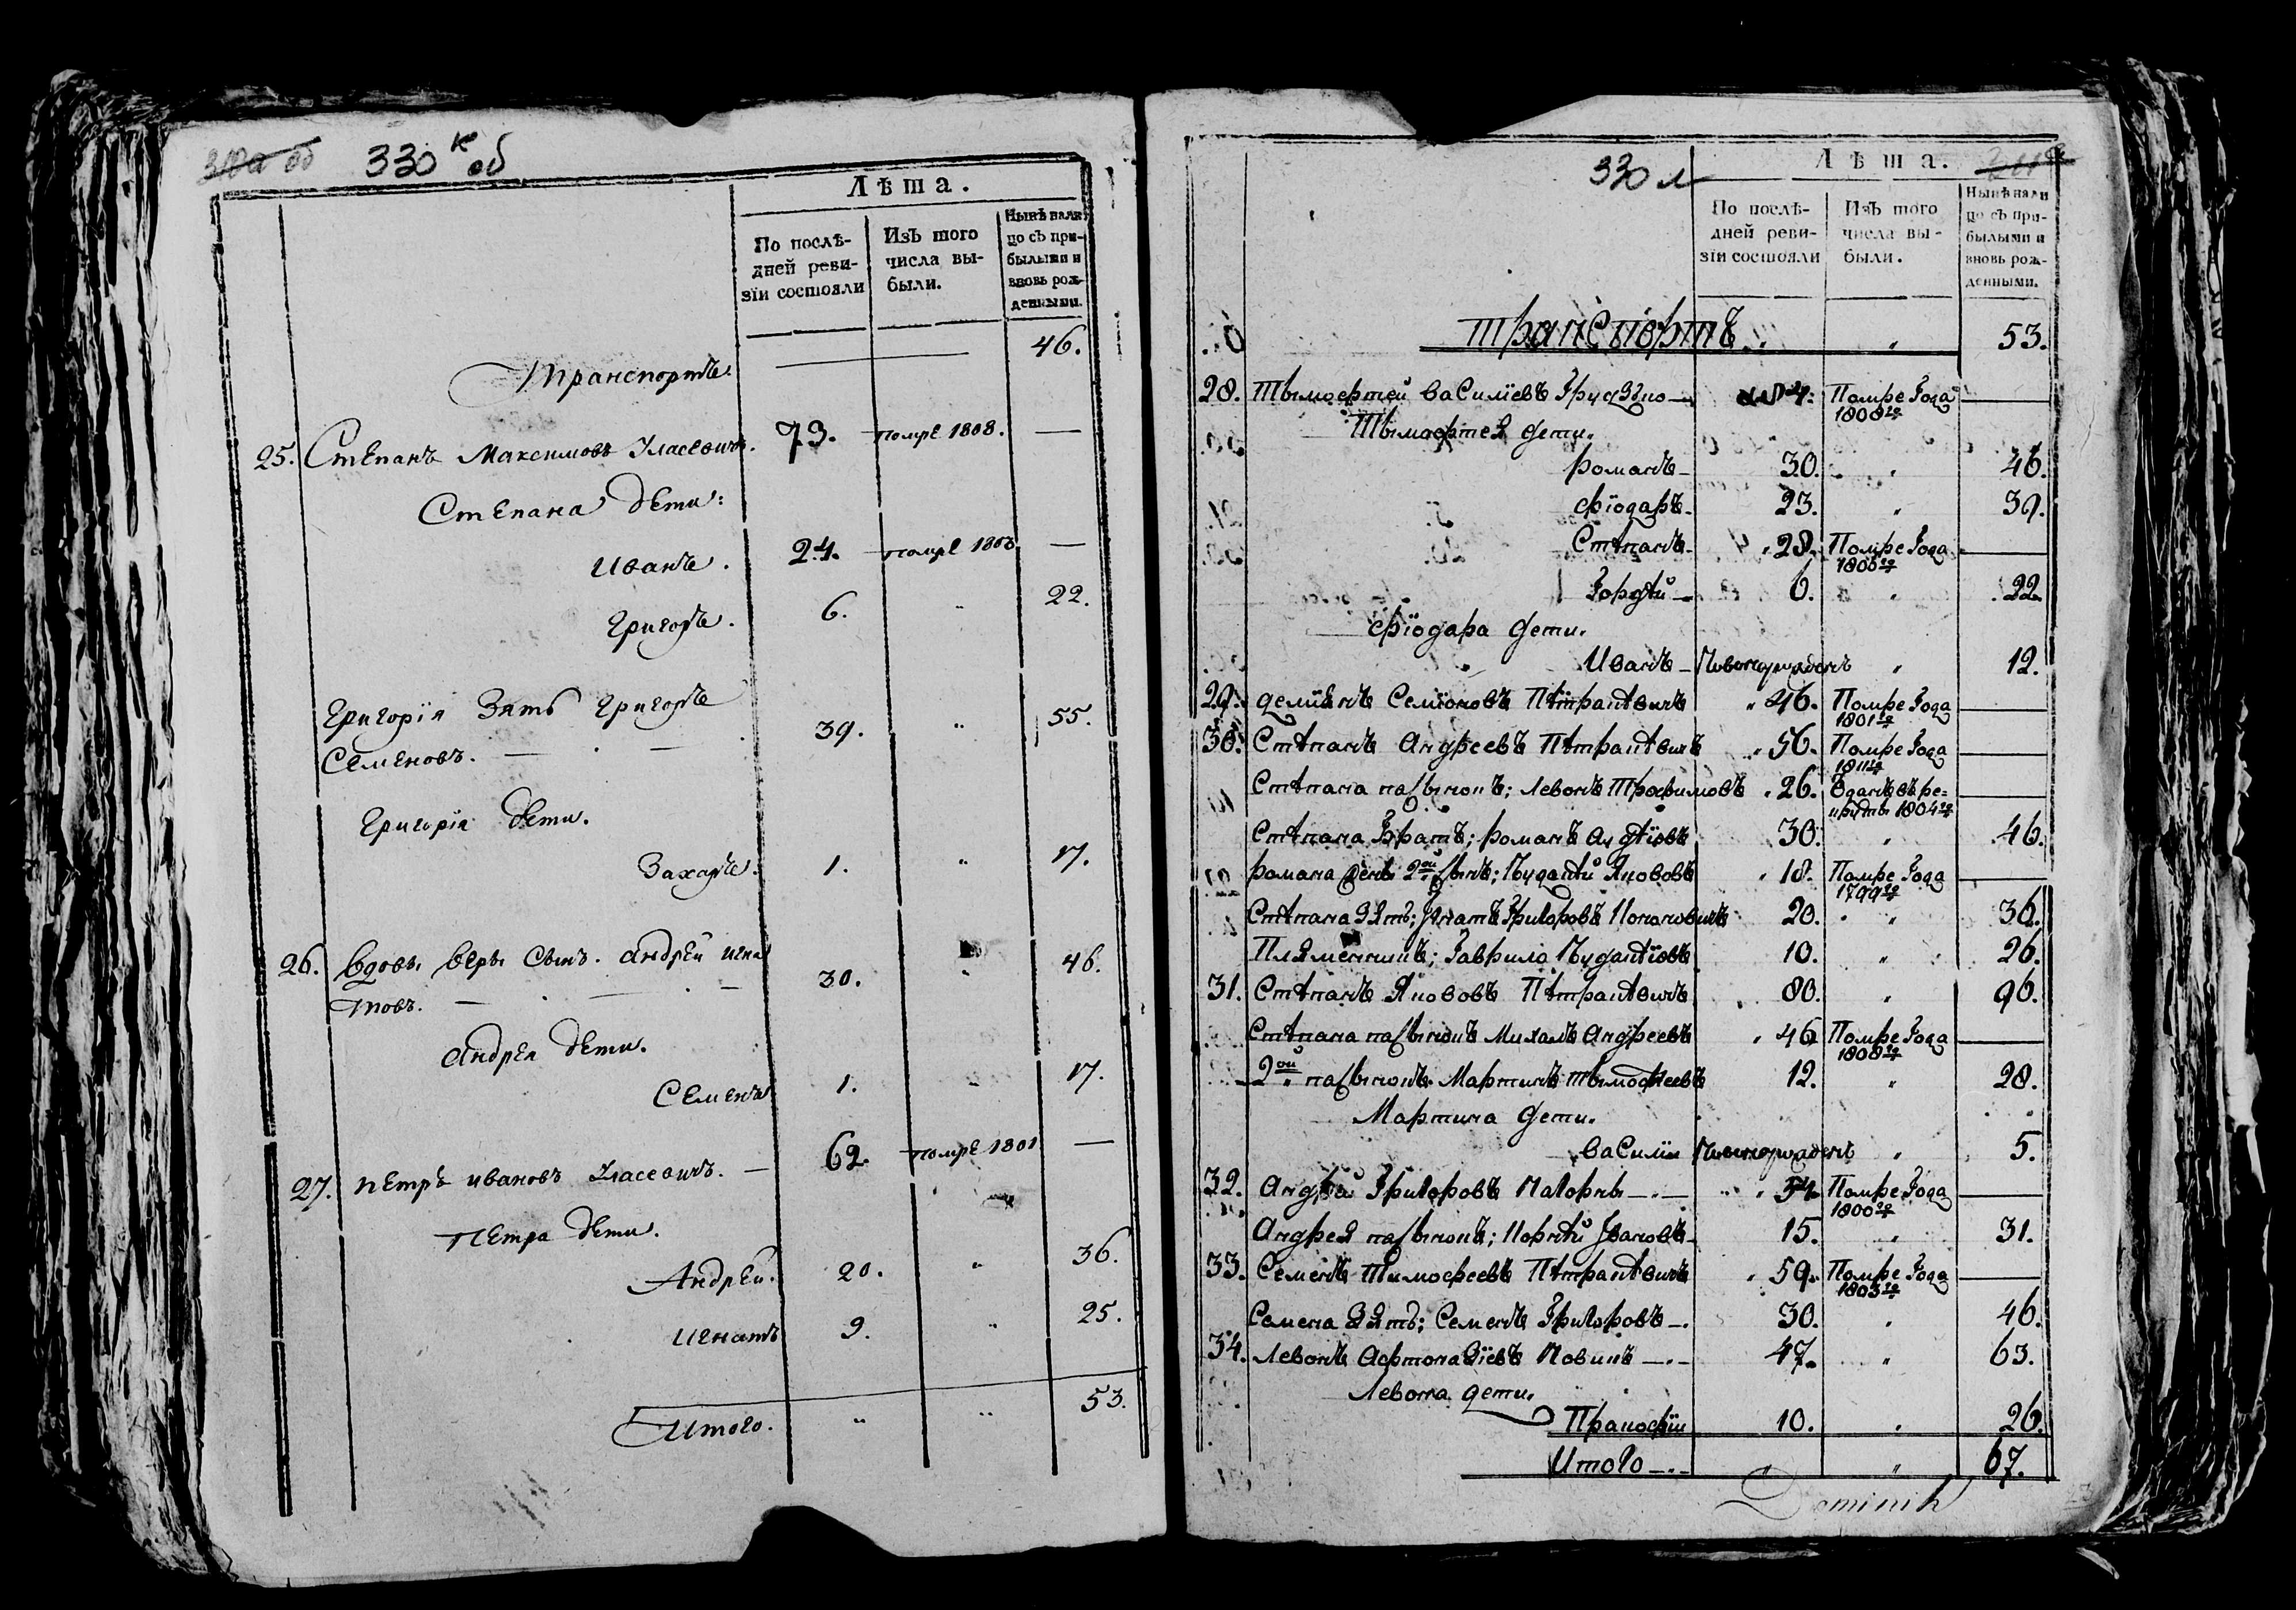 330 к об
Лѣта.
По послѣ-
дней реви-
зіи состояли
Изъ того
числа вы-
были.
Нынѣ нали
цо съ при-
былыми и
вновь рож-
денными.
Транспортъ. 46.
25. Степанъ Максимовъ 73. помре 1808. —
Степана дети:
Иванъ. 24. помре 1808 —
Григоръ. 6. " 22.
Григорія Зять Григоръ
Семеновъ. — 39. " 55.
Григорія дети.
Захаръ. 1. " 17.
26. Вдовы Веры Сынъ. Андрей Игна
товъ. — 30. " 46.
Андрея дети.
Семенъ 1. " 17.
27. Петръ Ивановъ — 62. помре 1801 —
Петра дети.
Андрей. 20. " 36.
Игнатъ 9. " 25.
Итого. " " 53.
330 л
Лѣта.
По послѣ-
дней реви-
зіи состояли
Изъ того
числа вы-
были.
Нынѣ нали
цо съ при-
былыми и
вновь рож-
денными.
Транспортъ " " 53.
28. Тымофтей Василіевъ Помре Года
1808го
Тымофтея дети.
Романъ 30. " 46.
Фіодаръ 23. " 39.
Стѣпанъ 28. Помре Года
1806го
Гордѣй 6. " 22.
Фіодара дети.
Иванъ Новонарожденъ " 12.
29. Деміянъ Семіоновъ Пѣтрашѣвичъ 46. Помре Года
1801го
30. Стѣпанъ Андреевъ Пѣтрашѣвичъ 56. Помре Года
1811го
Стѣпана пасынокъ; Левонъ Трофимовъ 26. Зданъ въ ре=
круты 1804го
Стѣпана Братъ; Романъ 30. " 46.
Романа 2ой Яковъ 18. Помре Года
1799го
Стѣпана Зять; Ігнатъ Григоровъ 20. " 36.
Плямѣнникъ; Гаврило 10. " 26.
31. Стѣпанъ Яковъ Пѣтрашѣвичъ 80. " 96.
Стѣпана пасынокъ Михалъ Андреевъ 46 Помре Года
1808го
2ой пасынокъ Мартинъ Тымофтеевъ 12. " 28.
Мартина дети.
Василіи Новонарожденъ " 5.
32. Андрѣй Григоровъ 54. Помре Года
1800го
Андрея пасынокъ; Корнѣй Івановъ 15. " 31.
33. Семенъ Тимофеевъ Пѣтрашѣвичъ 59. Помре Года
1803го
Семена Зять; Семенъ Григоровъ 30. " 46.
34. Левонъ 47. " 63.
Левона дети.
Пракофіи 10. " 26.
Итого " " 67.
Dominik